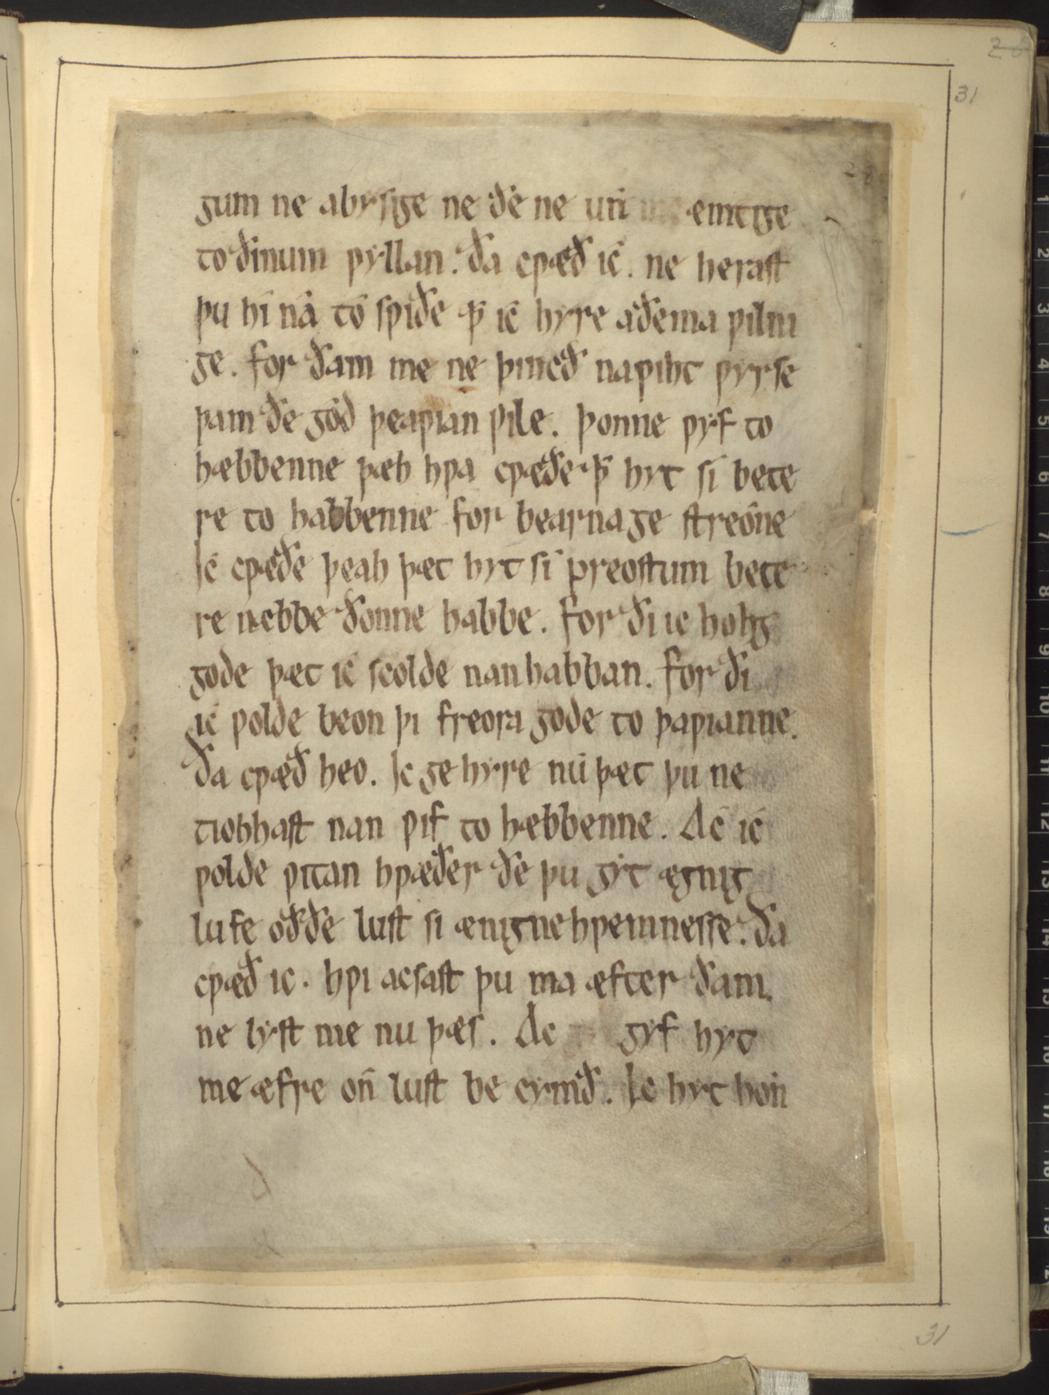 gum ne abysige ne ðe ne æmtige
to ðinum ƿyllan. Ða cƿæð ic. ne herast
þu hi na to sƿiðe ꝥ ic hyre aðe ma ƿilni
ge. for ðam me ne þincð naƿiht ƿyrse
þam ðe god þeaƿian ƿile. Þonne ƿyf to
hæbbenne þæh hƿa cƿæðe ꝥ hyt si bete
re to habbenne for bearna ge streone
Ic cƿæðe þeah þæt hyt si preostum bete
re næbbe ðonne habbe. for ði ic hohg
gode þæt ic scolde nan habban. for ði
ic ƿolde beon þi freora gode to þaƿianne.
Ða cƿæð heo. Ic ge hyre nu þæt þu ne
tiohhast nan ƿif to hæbbenne. Ac ic
ƿolde ƿitan hƿæðer ðe þu gyt ægnig
lufe oððe lust si ænigne hƿemnesse. Ða
cƿæð ic. hƿi acsast þu ma æfter ðam.
ne lyst me nu þæs. Ac gyf hyt
me æfre on̄ lust be cymð. Ic hyt hon̄